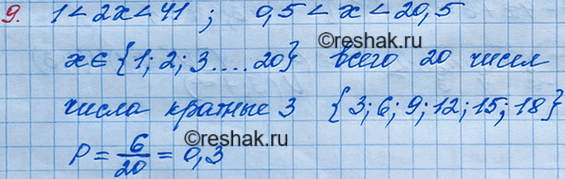 9. 1 < 2x < 41 ; 0,5 < x < 20,5
x ∈ {1; 2; 3....20} всего 20 чисел
числа кратные 3 {3; 6; 9; 12; 15; 18}
P = 6/20 = 0,3
©reshak.ru
©reshak.ru
©reshak.ru